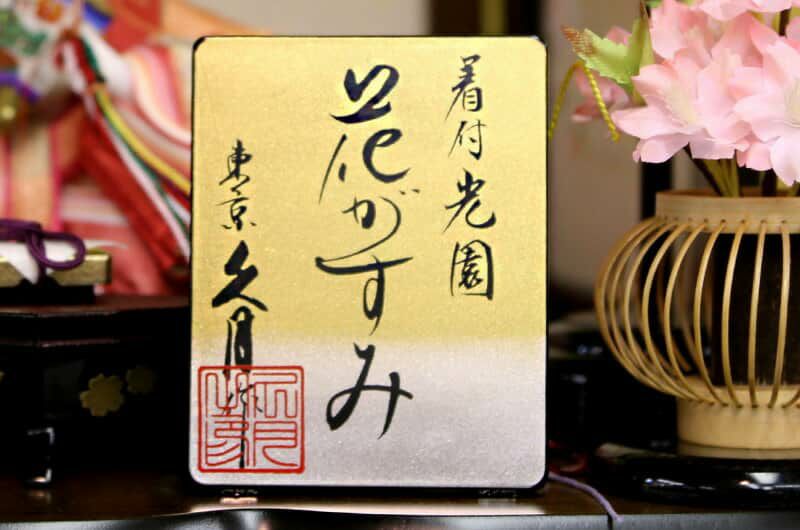 着付光園
花がすみ
東京久月作